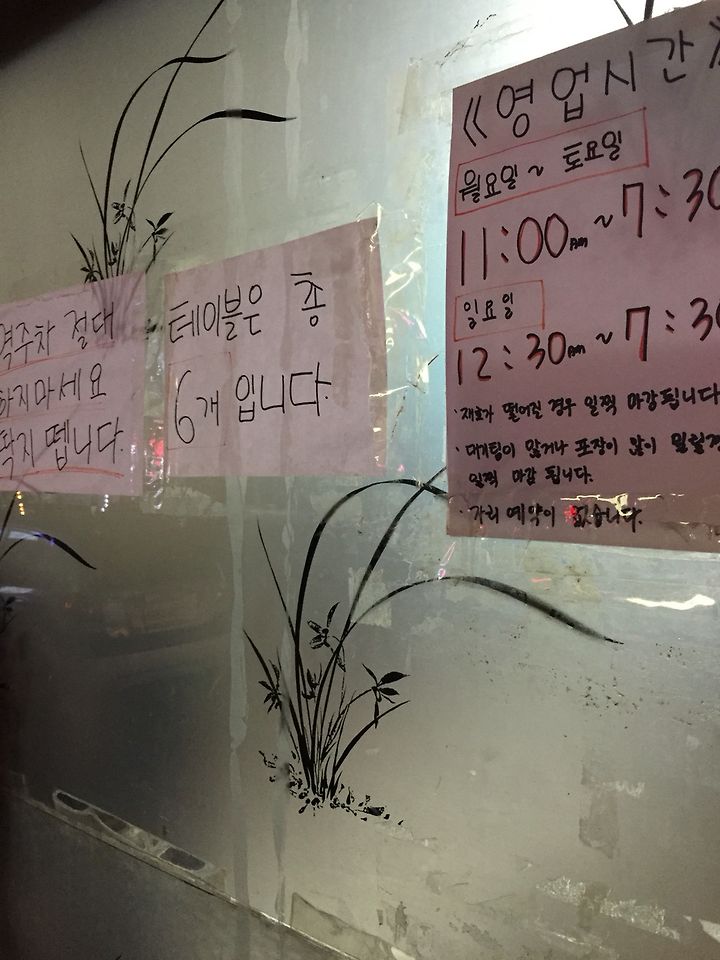 격주차 절대
하지마세요
딱지 뗍니다.
테이블은 총
6개 입니다.
《영업시간》
월요일 ~ 토요일
11:00 AM ~ 7:30
일요일
12:30 PM ~ 7:30
· 재료가 떨어질 경우 일찍 마감됩니다
· 대기팀이 많거나 포장이 많이 밀릴경
일찍 마감 됩니다.
· 자리 예약이 없습니다.